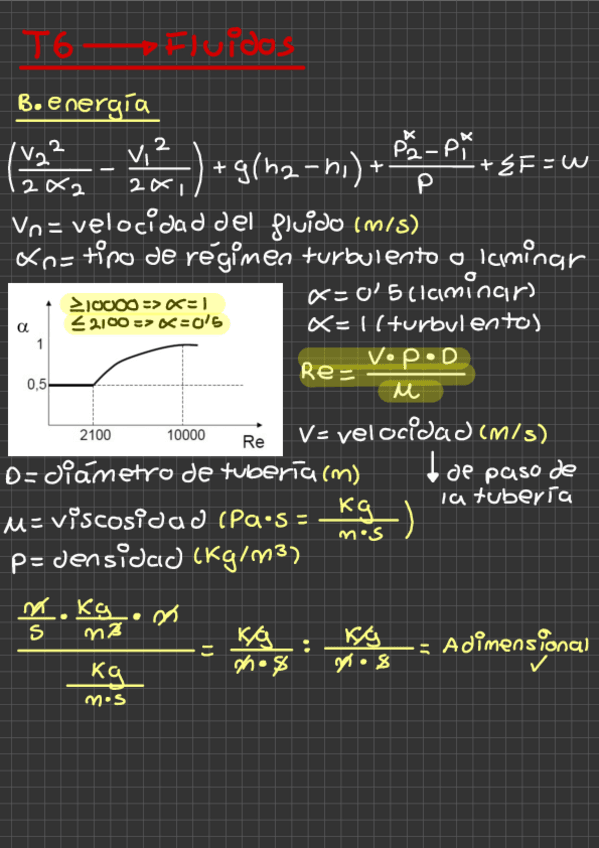 T6 → Fluidos
B. energía
(v₂²/2α₂ − v₁²/2α₁) + g(h₂−h₁) + (P₂*−P₁*)/ρ + ΣF = w
Vn = velocidad del fluido (m/s)
αn = tipo de régimen turbulento o laminar
≥10000 => α=1
≤2100 => α=0'5
α
1
0,5
2100 10000 Re
α = 0'5 (laminar)
α = 1 (turbulento)
Re = V·ρ·D/μ
V = velocidad (m/s)
↓ de paso de
la tubería
D = diámetro de tubería (m)
μ = viscosidad (Pa·s = Kg/m·s)
ρ = densidad (Kg/m³)
(m/s · Kg/m³ · m)/(Kg/m·s) = Kg/m·s : Kg/m·s = Adimensional ✓